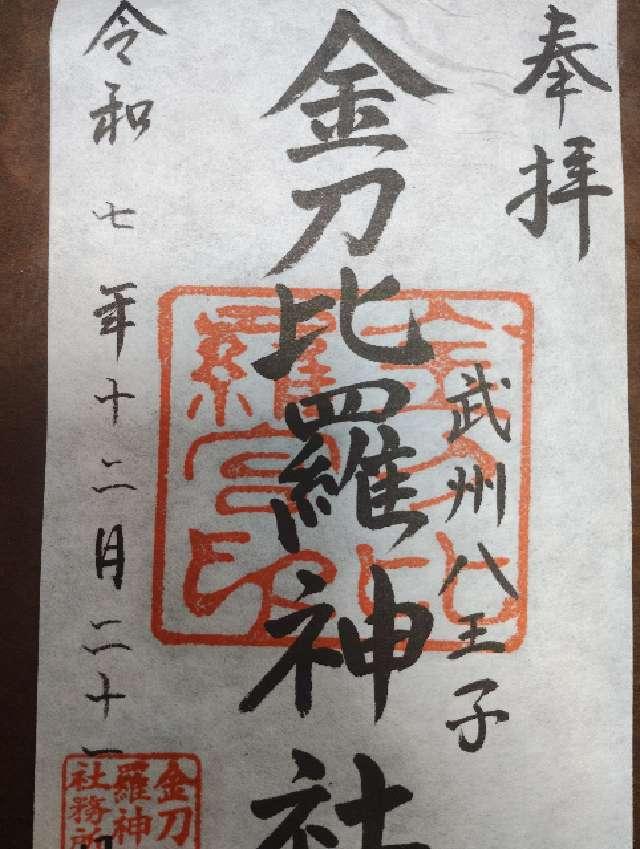 奉拝
武州八王子
金刀比羅神社
令和七年十二月二十一
金刀比
羅宮印
金刀
羅神
社務所